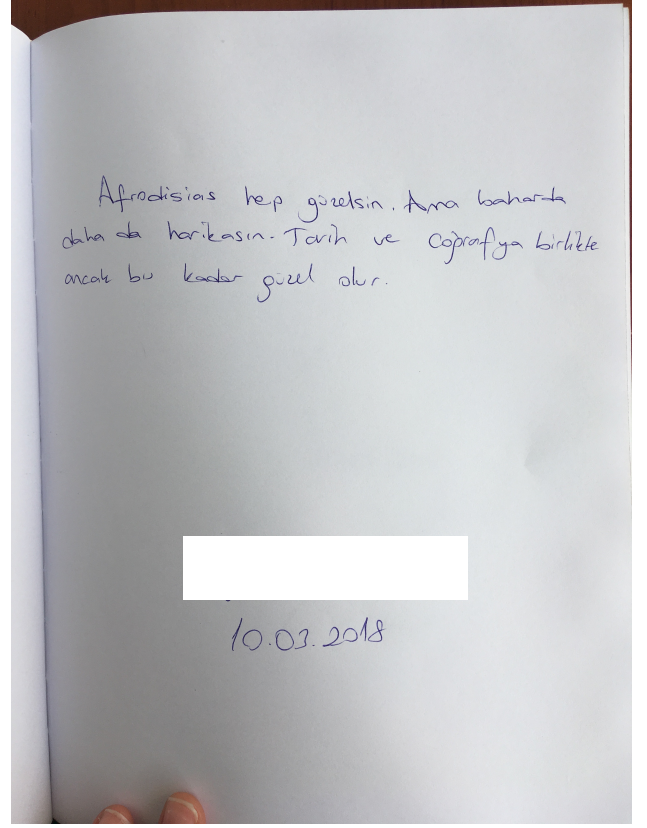 Afrodisias hep güzelsin. Ama baharda
daha da harikasın. Tarih ve Coğrafya birlikte
ancak bu kadar güzel olur.
10.03.2018